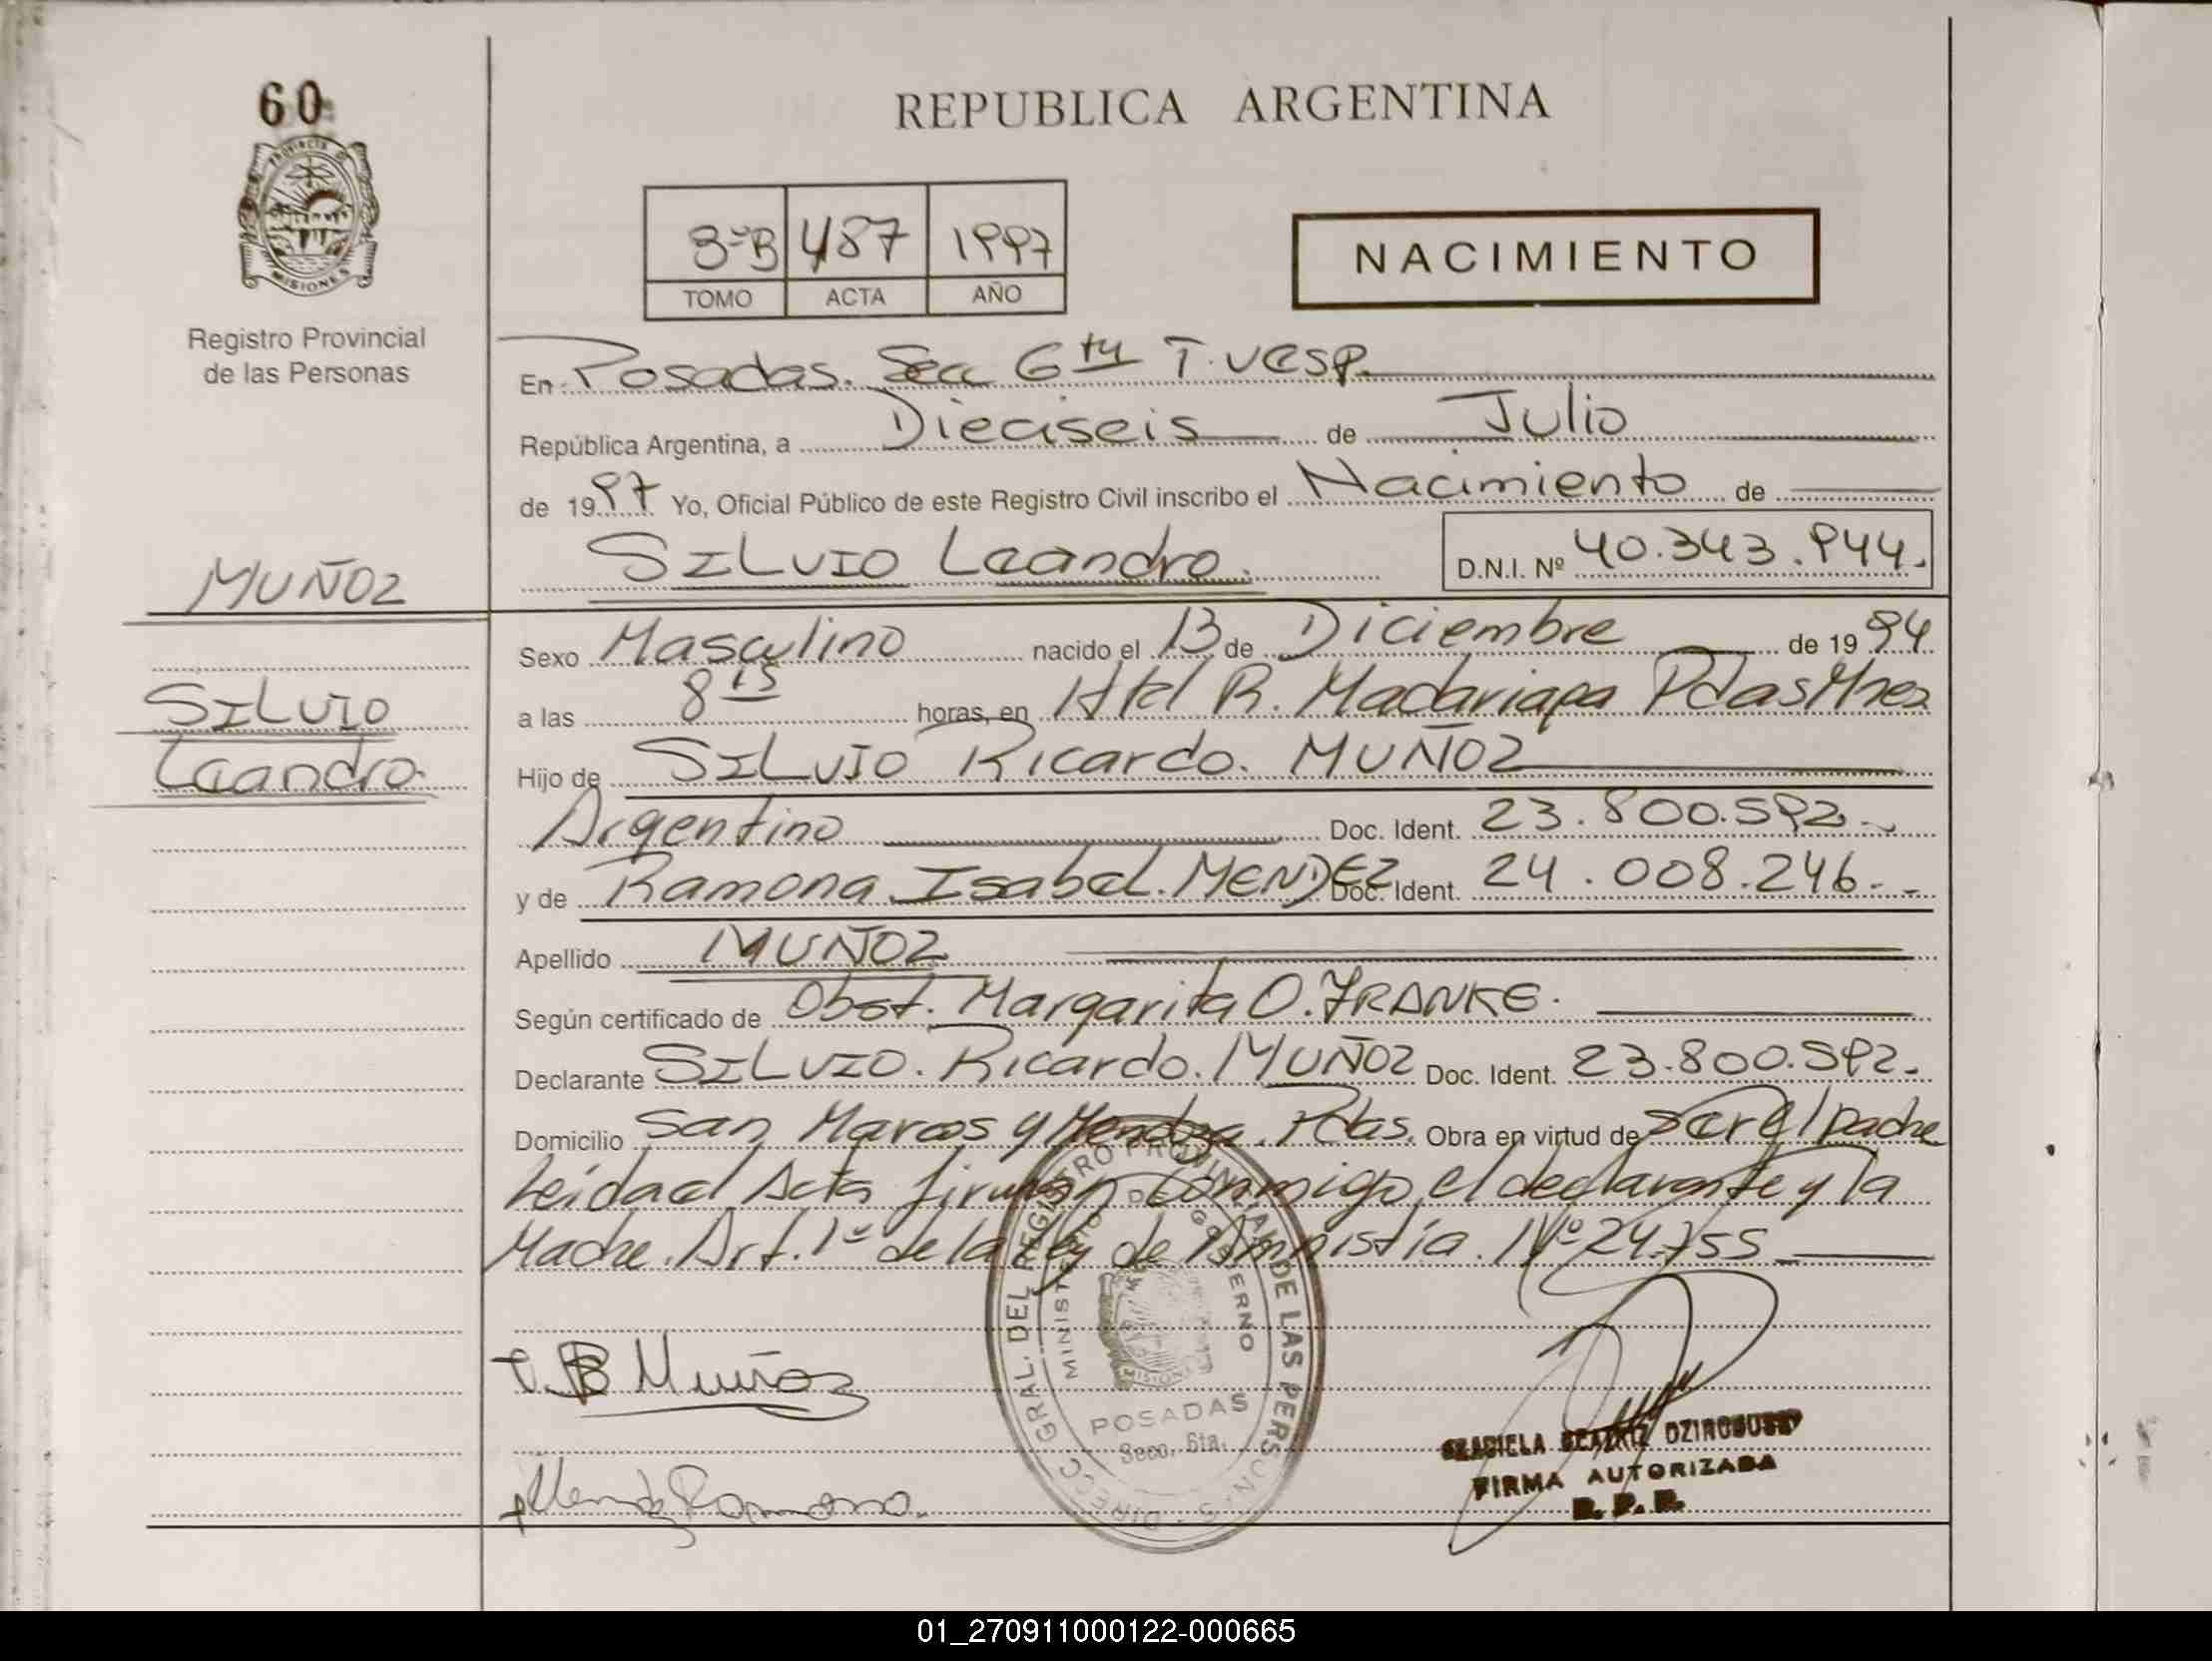 60
PROVINCIA DE
MISIONES
Registro Provincial
de las Personas
REPUBLICA ARGENTINA
3ºB 487 1997
TOMO ACTA AÑO
NACIMIENTO
En Posadas. Sec 6ta T. vesp.
República Argentina, a Dieciseis de Julio
de 1997 Yo, Oficial Público de este Registro Civil inscribo el Nacimiento de
SILVIO Leandro. D.N.I. Nº 40.343.944.
MUÑOZ
SILVIO
Leandro.
Sexo Masculino nacido el 13 de Diciembre de 1994
a las 8 15 horas, en Htal R. Madariaga Pdas Mnes
Hijo de SILVIO Ricardo. MUÑOZ
Argentino Doc. Ident. 23.800.592.-
y de Ramona Isabel. MENDEZ Doc. Ident. 24.008.246.-
Apellido MUÑOZ
Según certificado de Obst. Margarita O. FRANKE.
Declarante SILVIO. Ricardo. MUÑOZ Doc. Ident. 23.800.592.
Domicilio San Marcos y Mendoza. Pdas. Obra en virtud de ser el padre
Leída el Acta firman conmigo el declarante y la
Madre. Art. 1º de la Ley de Amnistía. Nº 24.755
DIRECC GRAL. DEL REGISTRO PROVINCIAL DE LAS PERSONAS
MINISTERIO DE GOBIERNO
MISIONES
POSADAS
Secc. 6ta.
Muñoz
Mendez Ramona.
GRACIELA BEATRIZ
FIRMA AUTORIZADA
R. P. P.
01_270911000122-000665